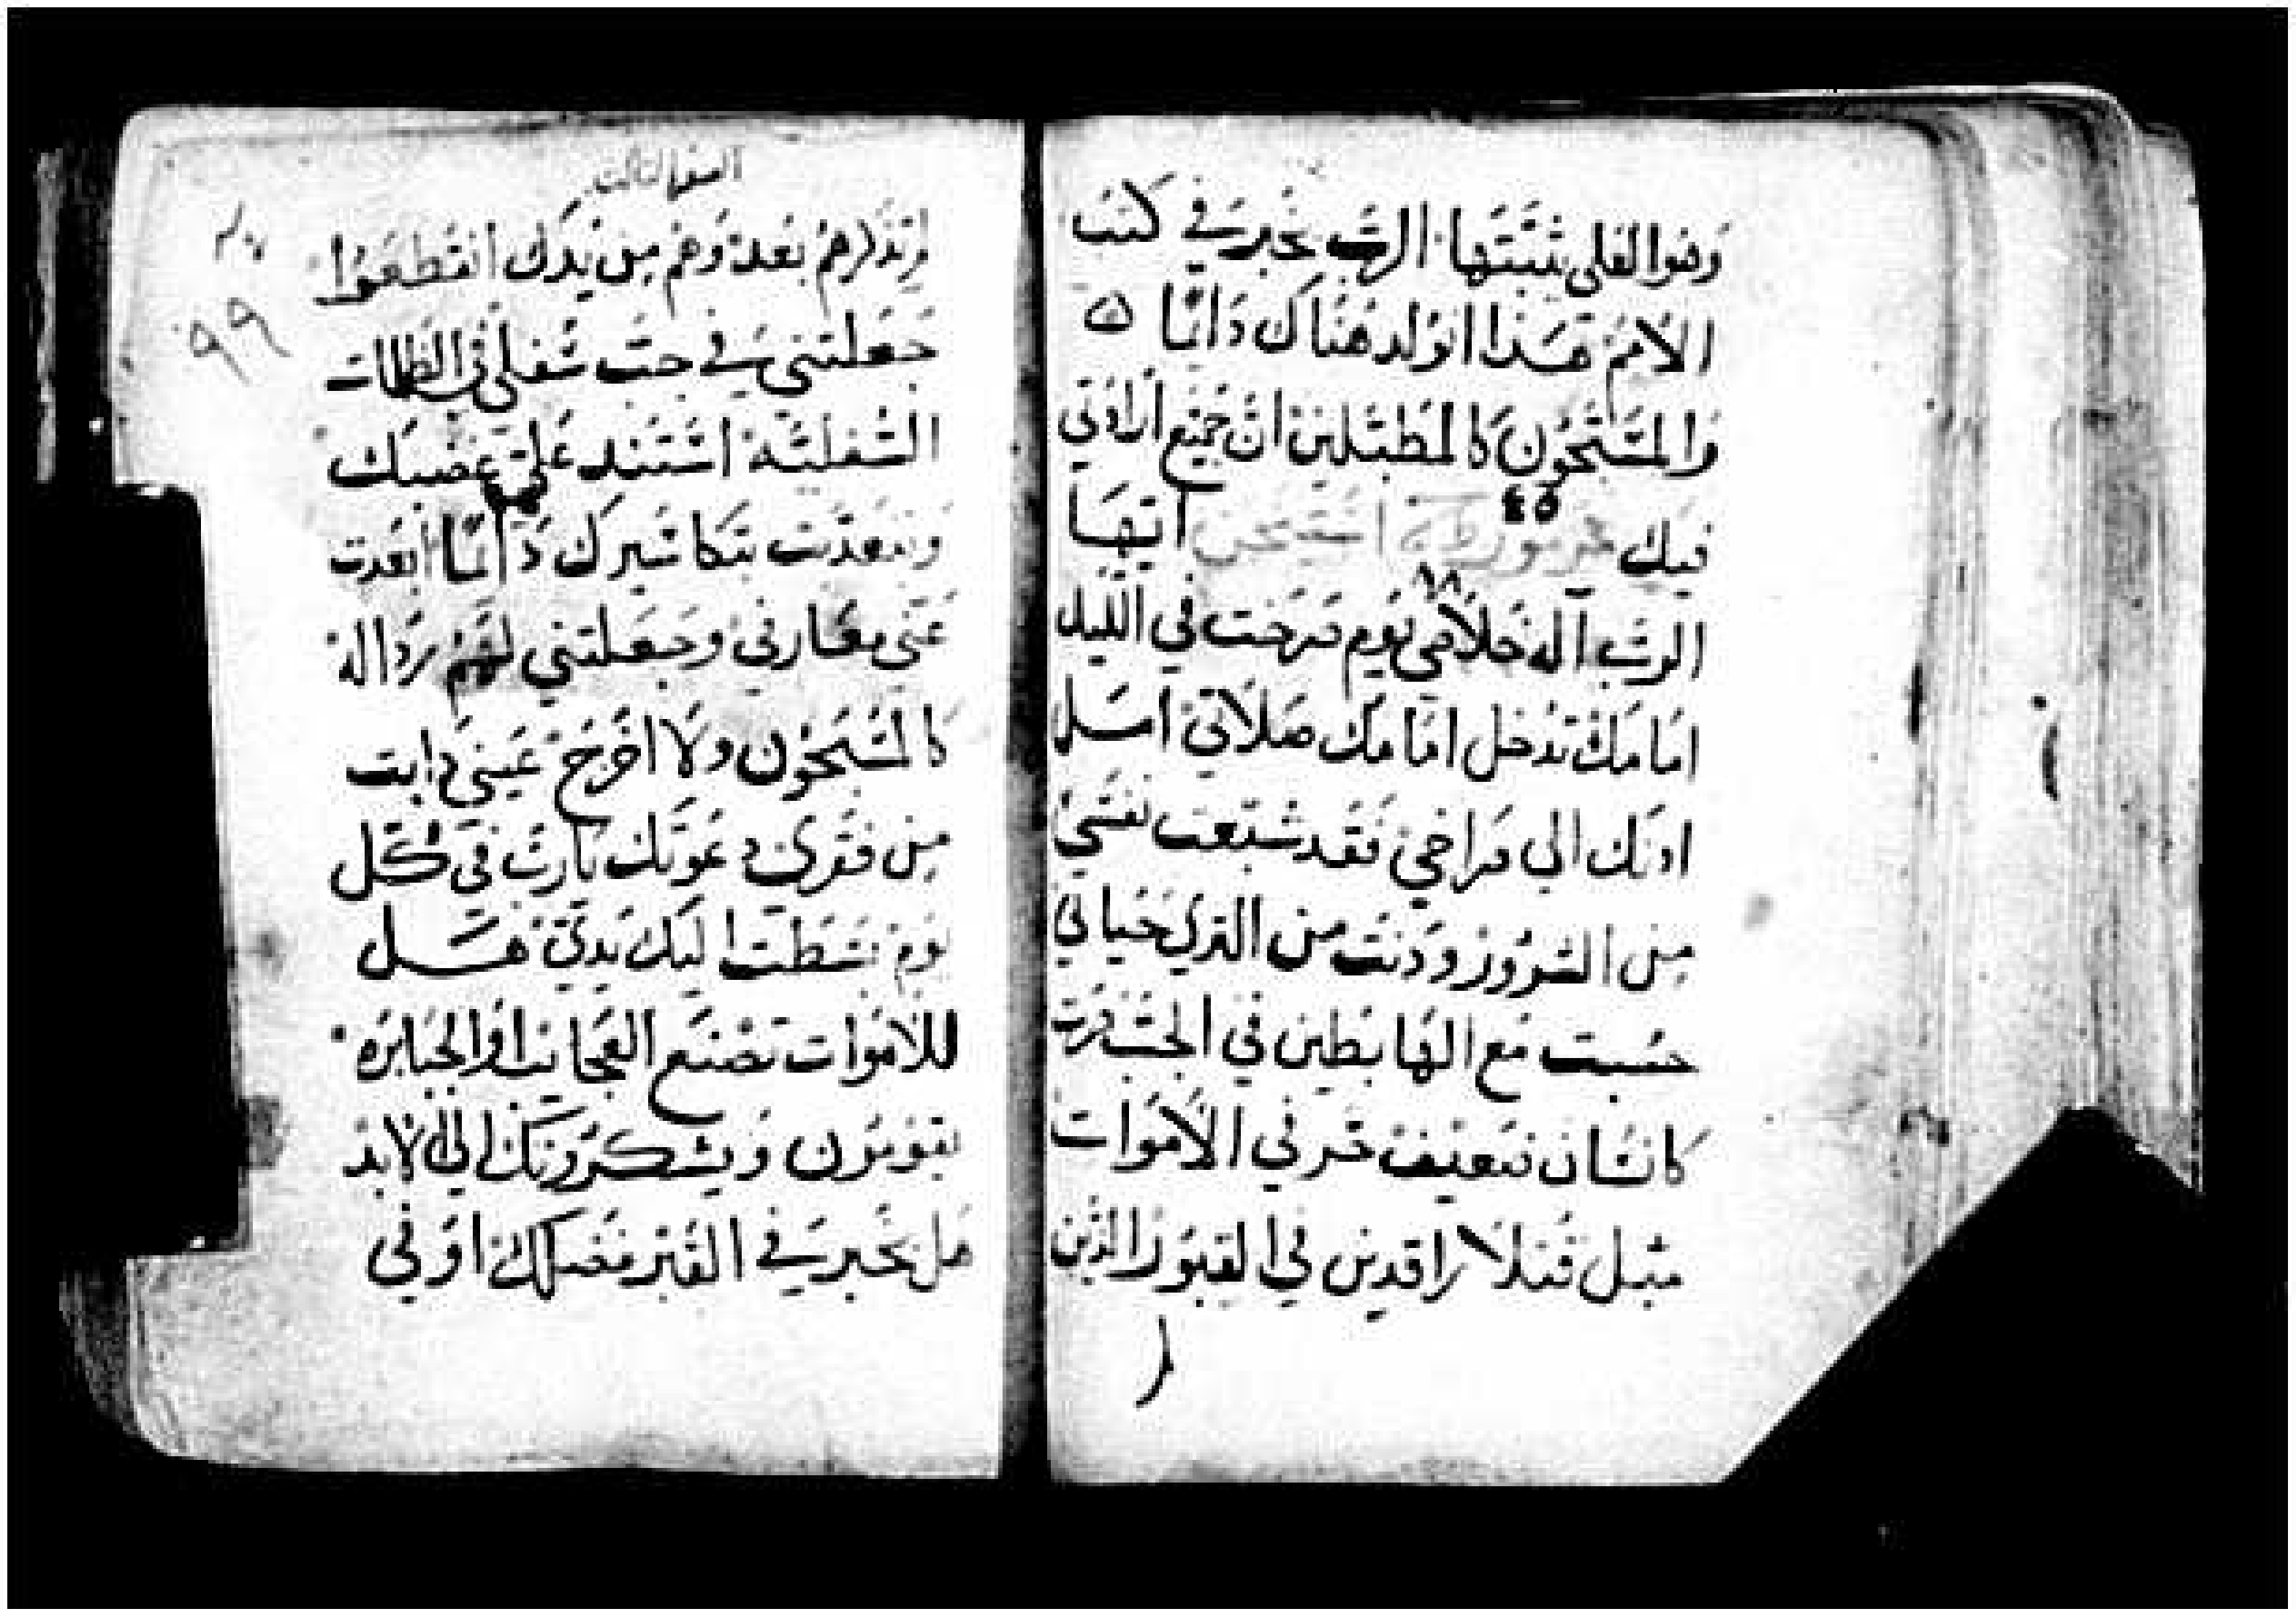 وهوا العلي يثبتها الرب يخبر في كتب
الامم هذا انولد هناك دائما ه
والمسبحون كالمطبلين ان جميع ارادتي
فيك مزمور ٤٥ استيخن ايتها
٨٨
الرب اله خلاصي يوم صرخت في الليل
امامك تدخل امامك صلاتي اميل
ادنك الي صراخي فقد شبعت نفسي
من الشرور ودنت من الثري حياتي
حسبت مع الهابطين في الجب صرت
كانسان ضعيف حر في الاموات
مثل قتلا راقدين في القبور الذين
لم
السفر الثالث
لم تذكرهم بعد وهم من يدك انقطعوا
جعلتني في جب سفلي في الظلمات
السفليه استند علي غضبك
وتعدت بتكاسيرك دائما ابعدت
عني معارفي وجعلتني لهم رداله
كالمسجون ولا اخرج عيني دابت
من فقري دعوتك يارب في كل
يوم بسطت اليك يدي هل
للاموات تصنع العجايب او الجبابره
يقومون ويشكرونك الي الابد
هل يخبر في القبر بفضلك او في
٩٩